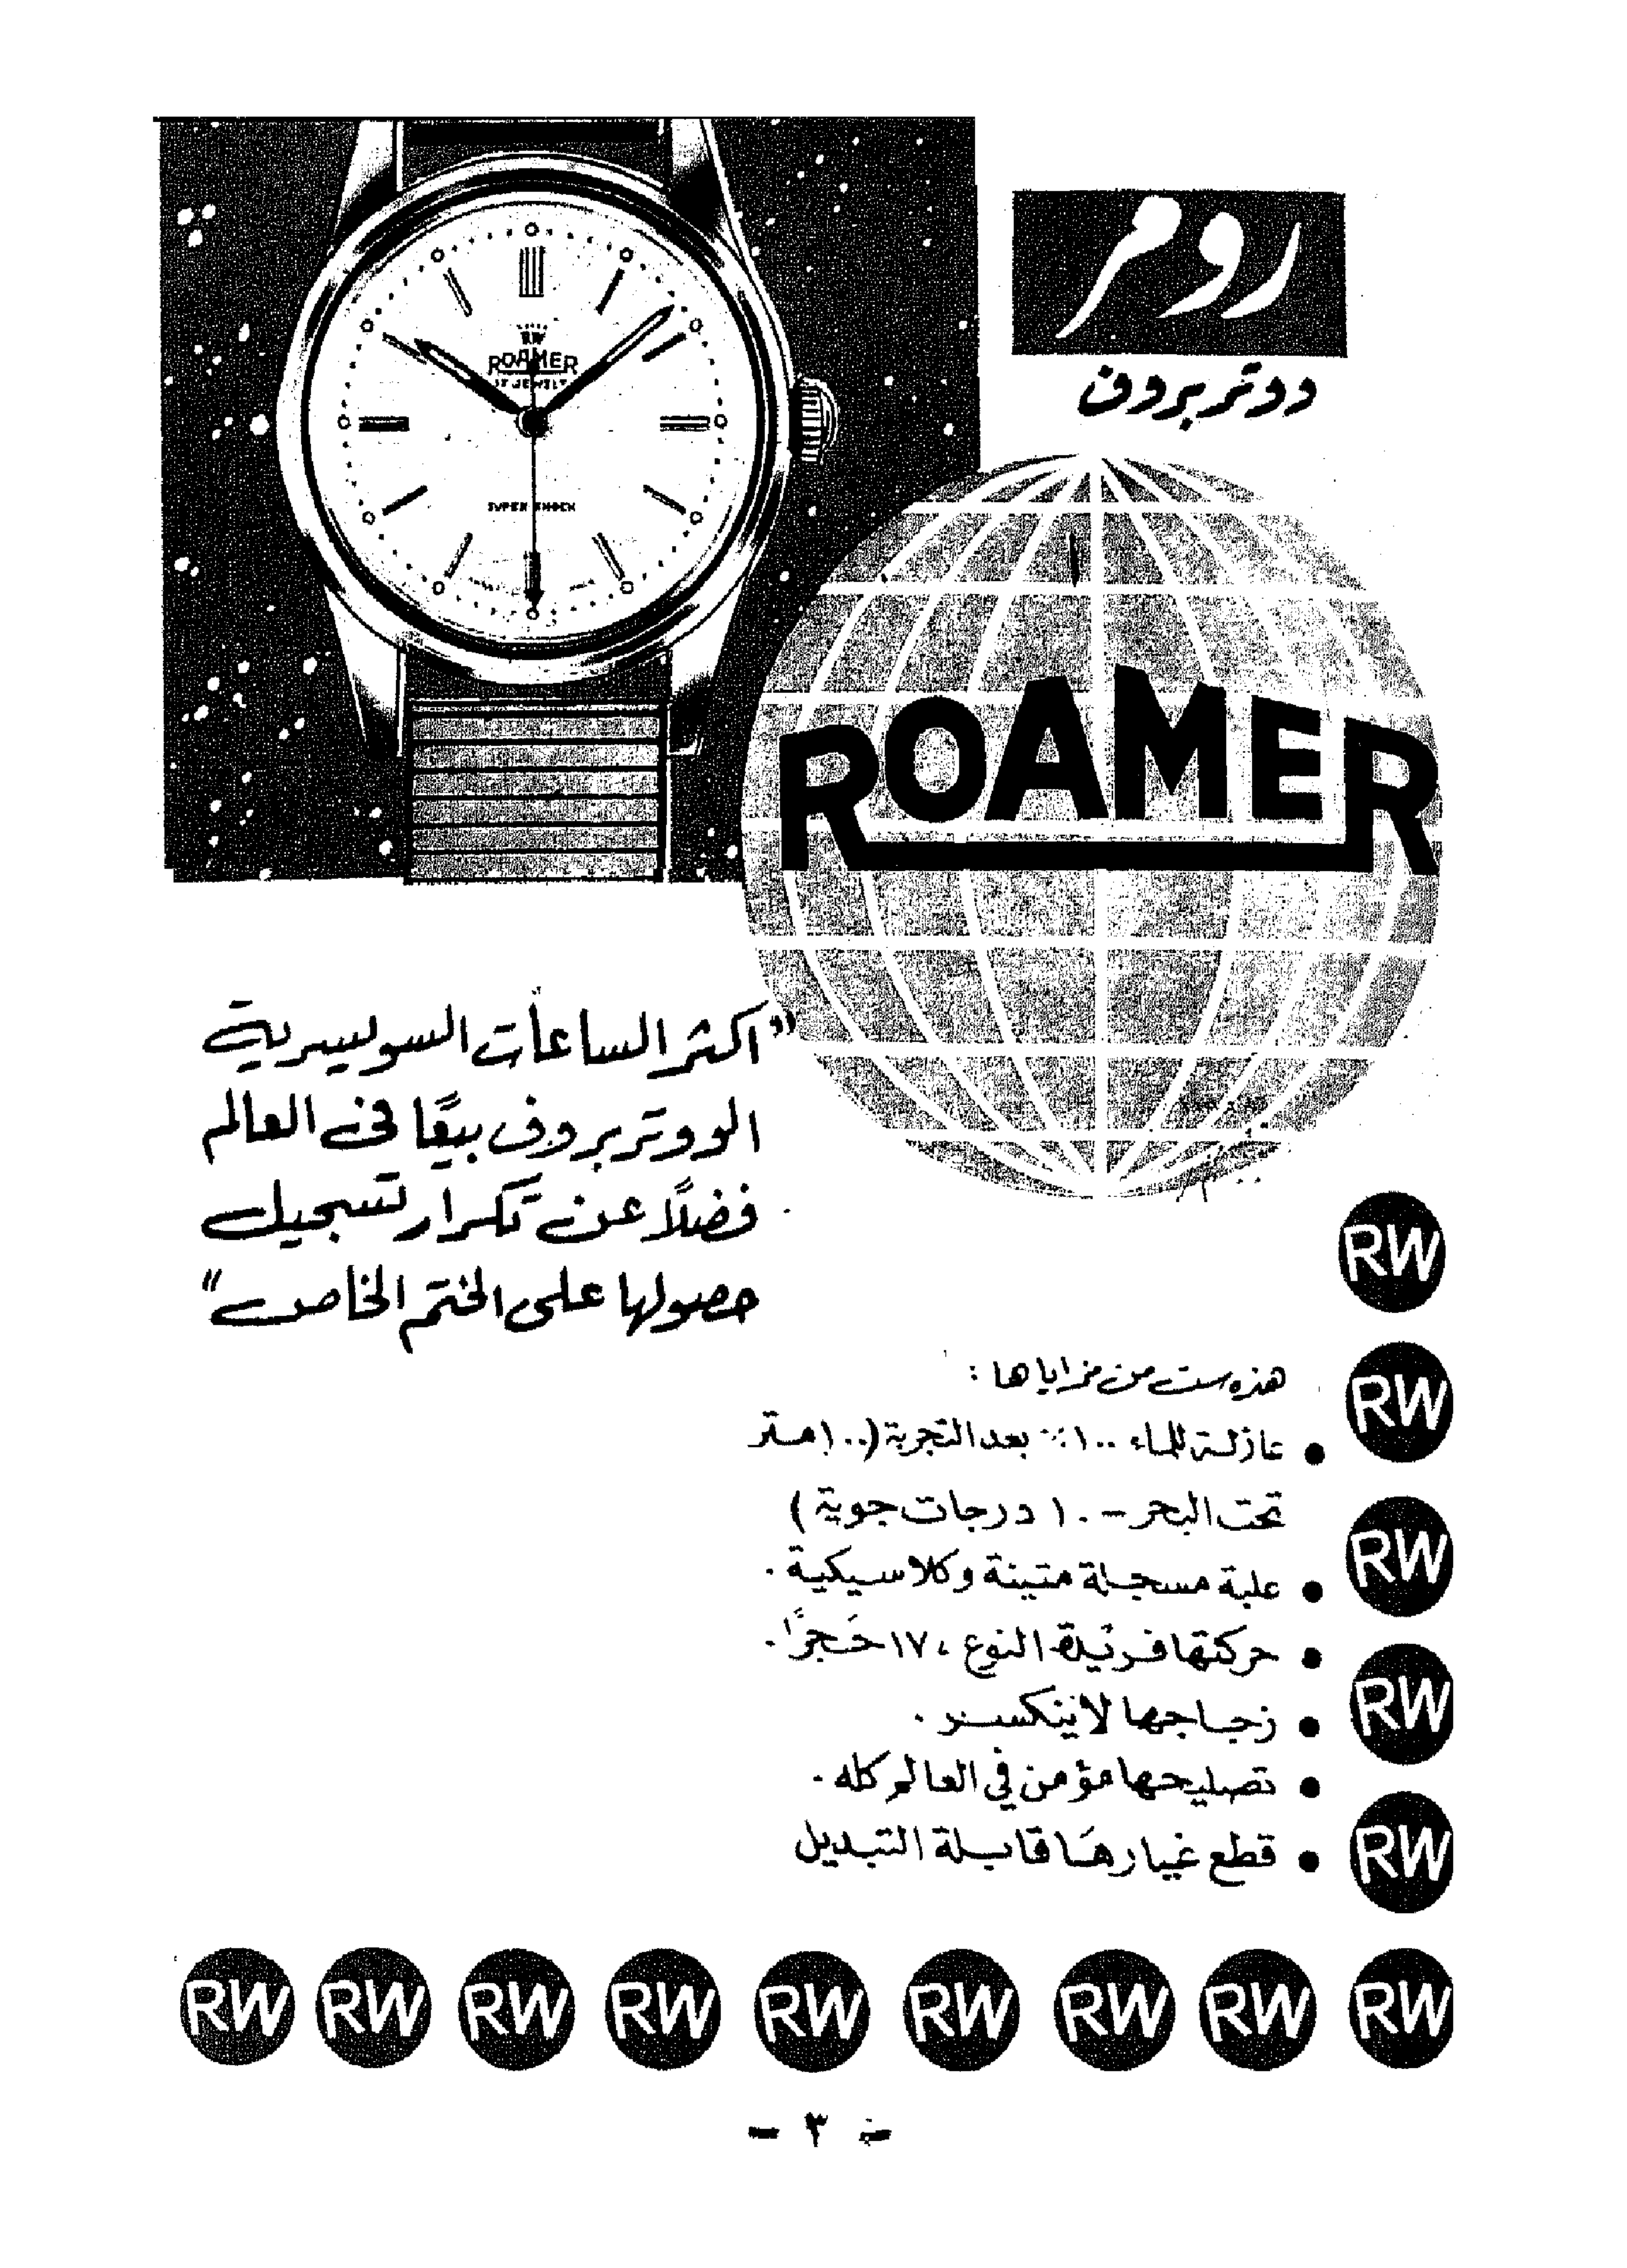 رومر
ووتربروف
RW
ROAMER
17 JEWELS
SUPER SHOCK
ROAMER
"اكثر الساعات السويسرية
الووتربروف بيعًا في العالم
فضلًا عن تكرار تسجيل
حصولها على الختم الخاص"
هذه ست من مزاياها :
● عازلة للماء ١٠٠٪ بعد التجربة (١٠٠ متر
تحت البحر - ١٠ درجات جوية )
● علبة مسجلة متينة وكلاسيكية .
● حركتها فريدة النوع ، ١٧ حَجرًا .
● زجاجها لا ينكسر .
● تصليحها مؤمن في العالم كله .
● قطع غيارهَا قابلة التبديل
RW
RW
RW
RW
RW
RW RW RW RW RW RW RW RW RW
- ٣ -